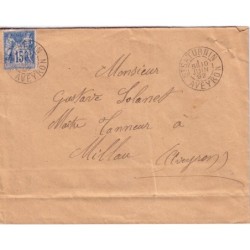 15
AVEYRON
AVEYRON
Monsieur
Gustave Solanet
Maître Tanneur
à
Millau (Aveyron)